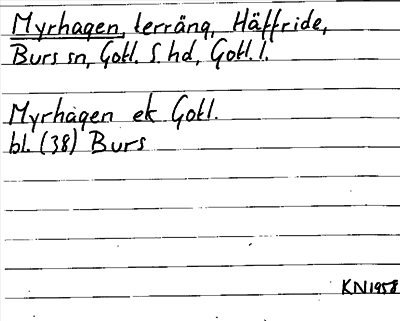 Myrhagen, terräng, Häffride,
Burs sn, Gotl. S. hd, Gotl. l.
Myrhagen ek Gotl.
bl. (38) Burs
KN1958